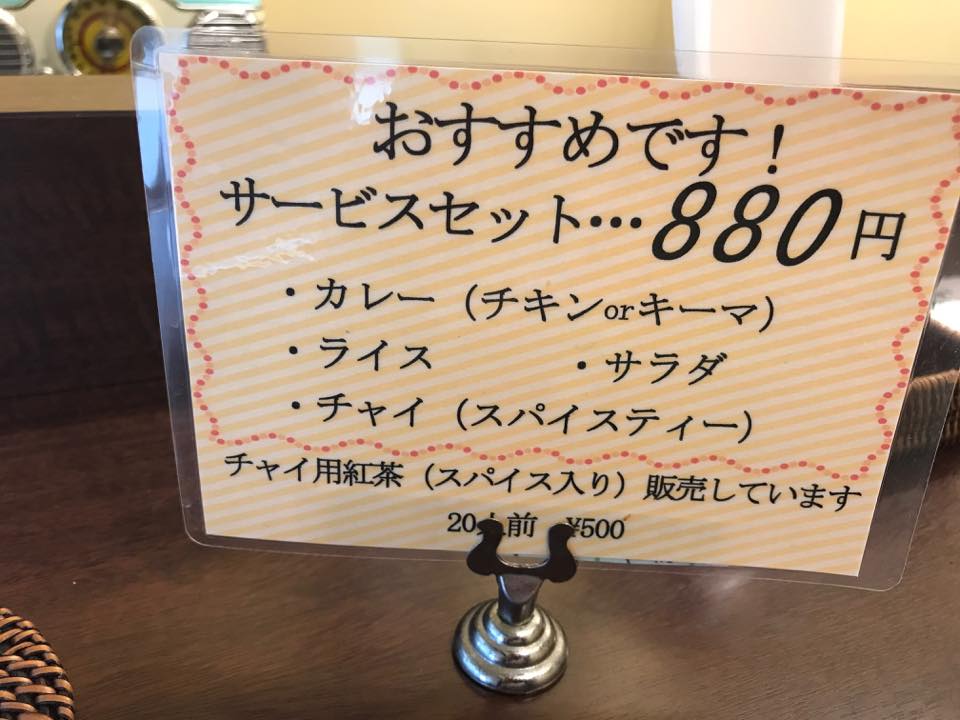 おすすめです！
サービスセット…880円
・カレー（チキンorキーマ）
・ライス ・サラダ
・チャイ（スパイスティー）
チャイ用紅茶（スパイス入り）販売しています
20人前 ¥500